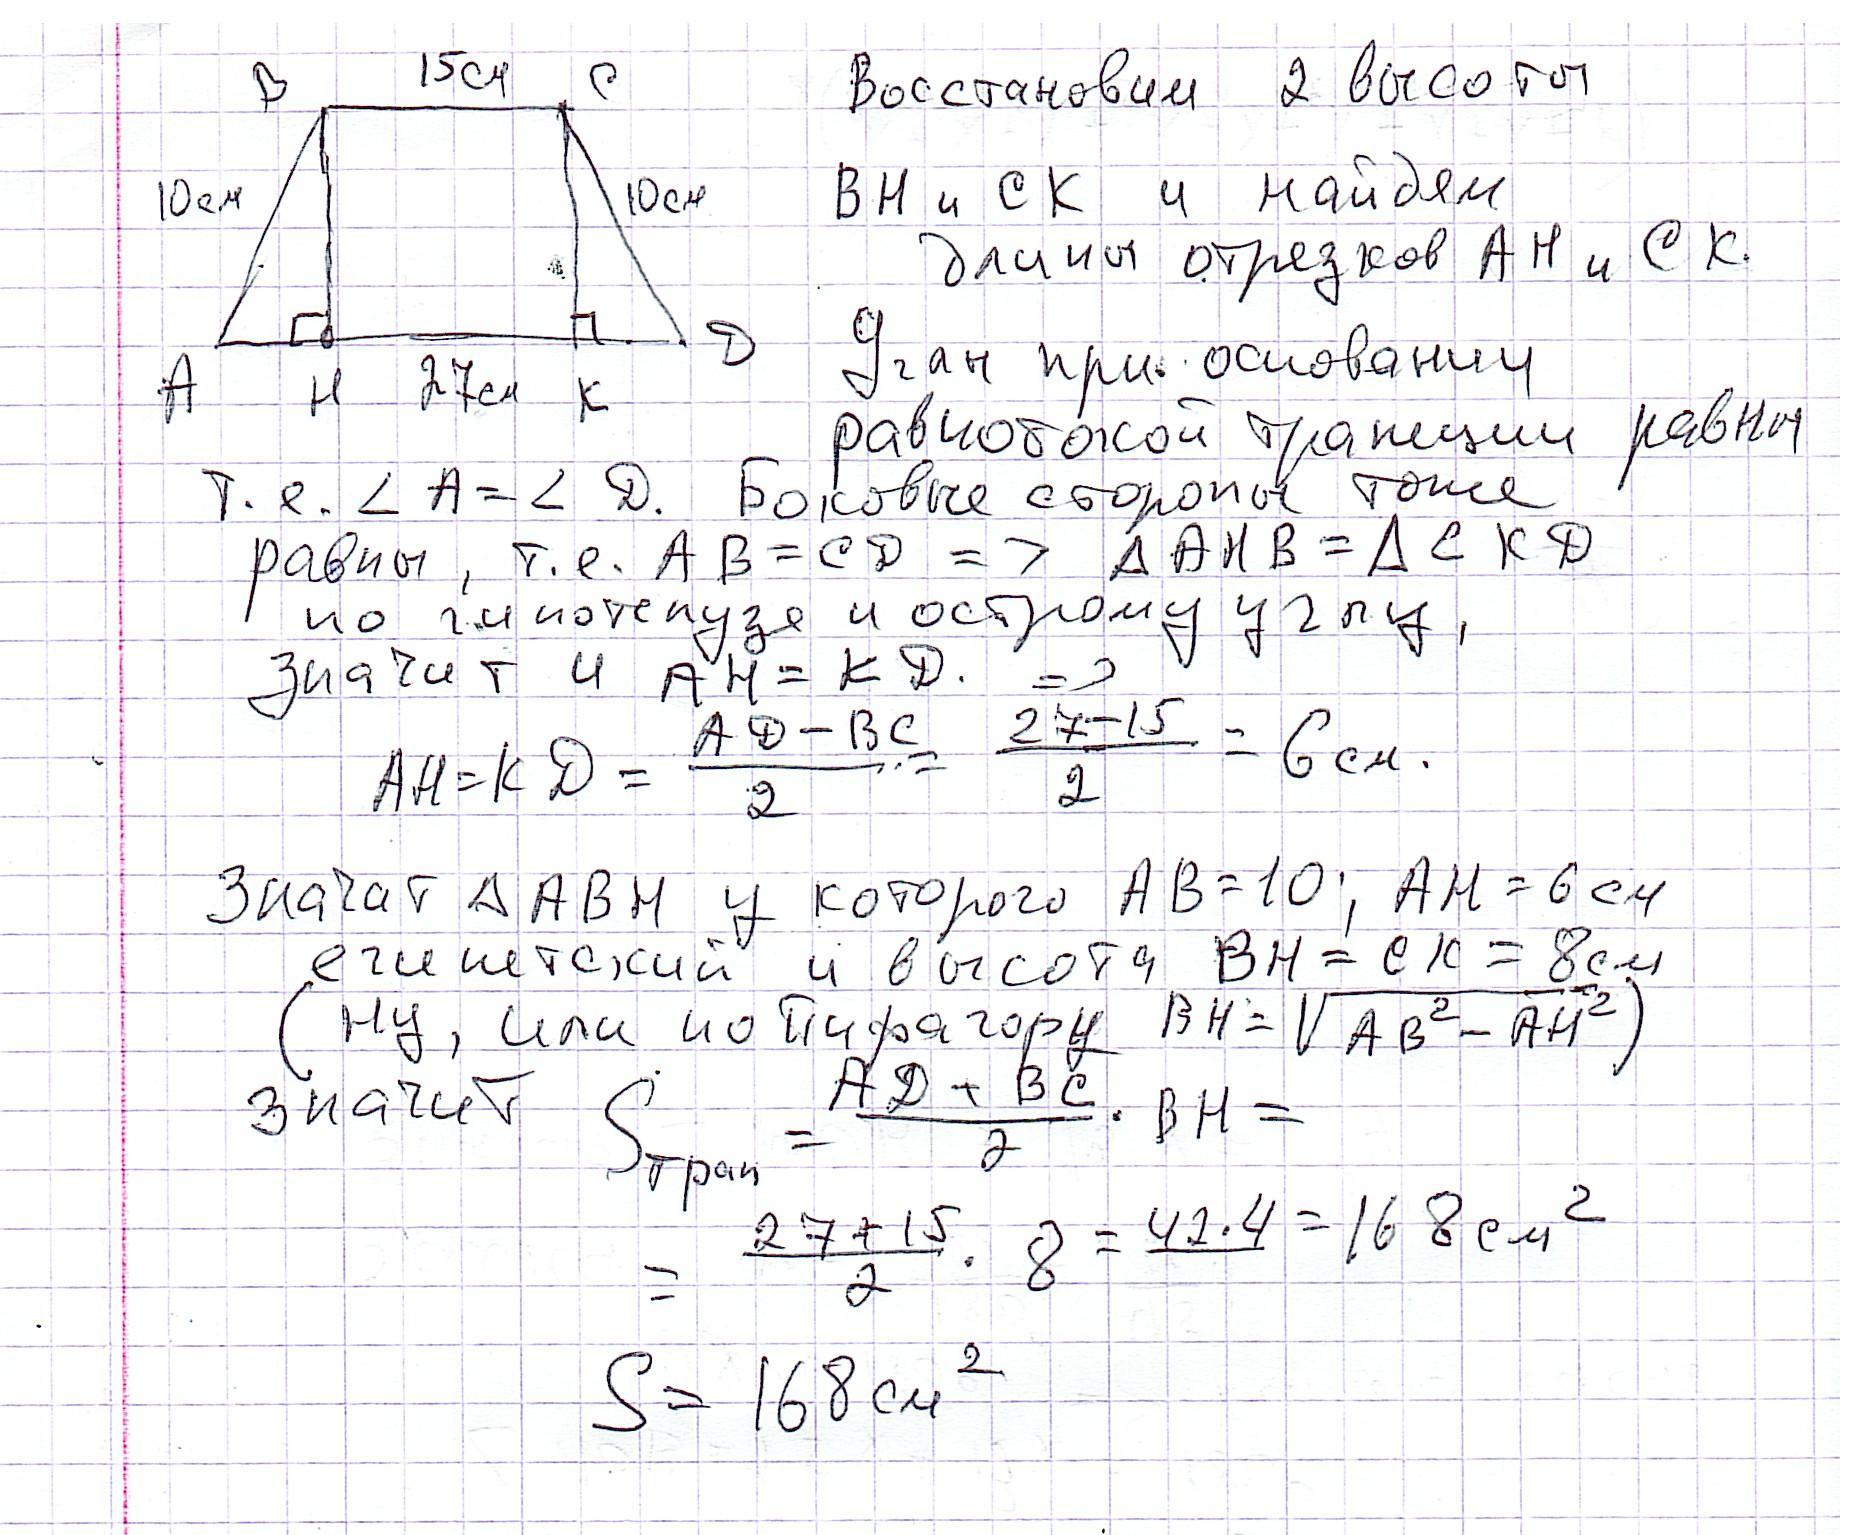 B 15см C
10см 10см
A H 27см K D
Восстановим 2 высоты
BH и CK и найдем
длины отрезков AH и CK.
Углы при основании
равнобокой трапеции равны
т.е. ∠A=∠D. Боковые стороны тоже
равны, т.е. AB=CD => ΔAHB=ΔCKD
по гипотенузе и острому углу,
значит и AH=KD. =>
AH=KD = (AD-BC)/2 = (27-15)/2 = 6см.
Значат ΔABH у которого AB=10; AH=6см
египетский и высота BH=CK=8см
(Ну, или по Пифагору BH=√(AB²-AH²))
значит Sтрап = (AD+BC)/2 · BH =
= (27+15)/2 · 8 = 42·4 = 168см²
S=168см²